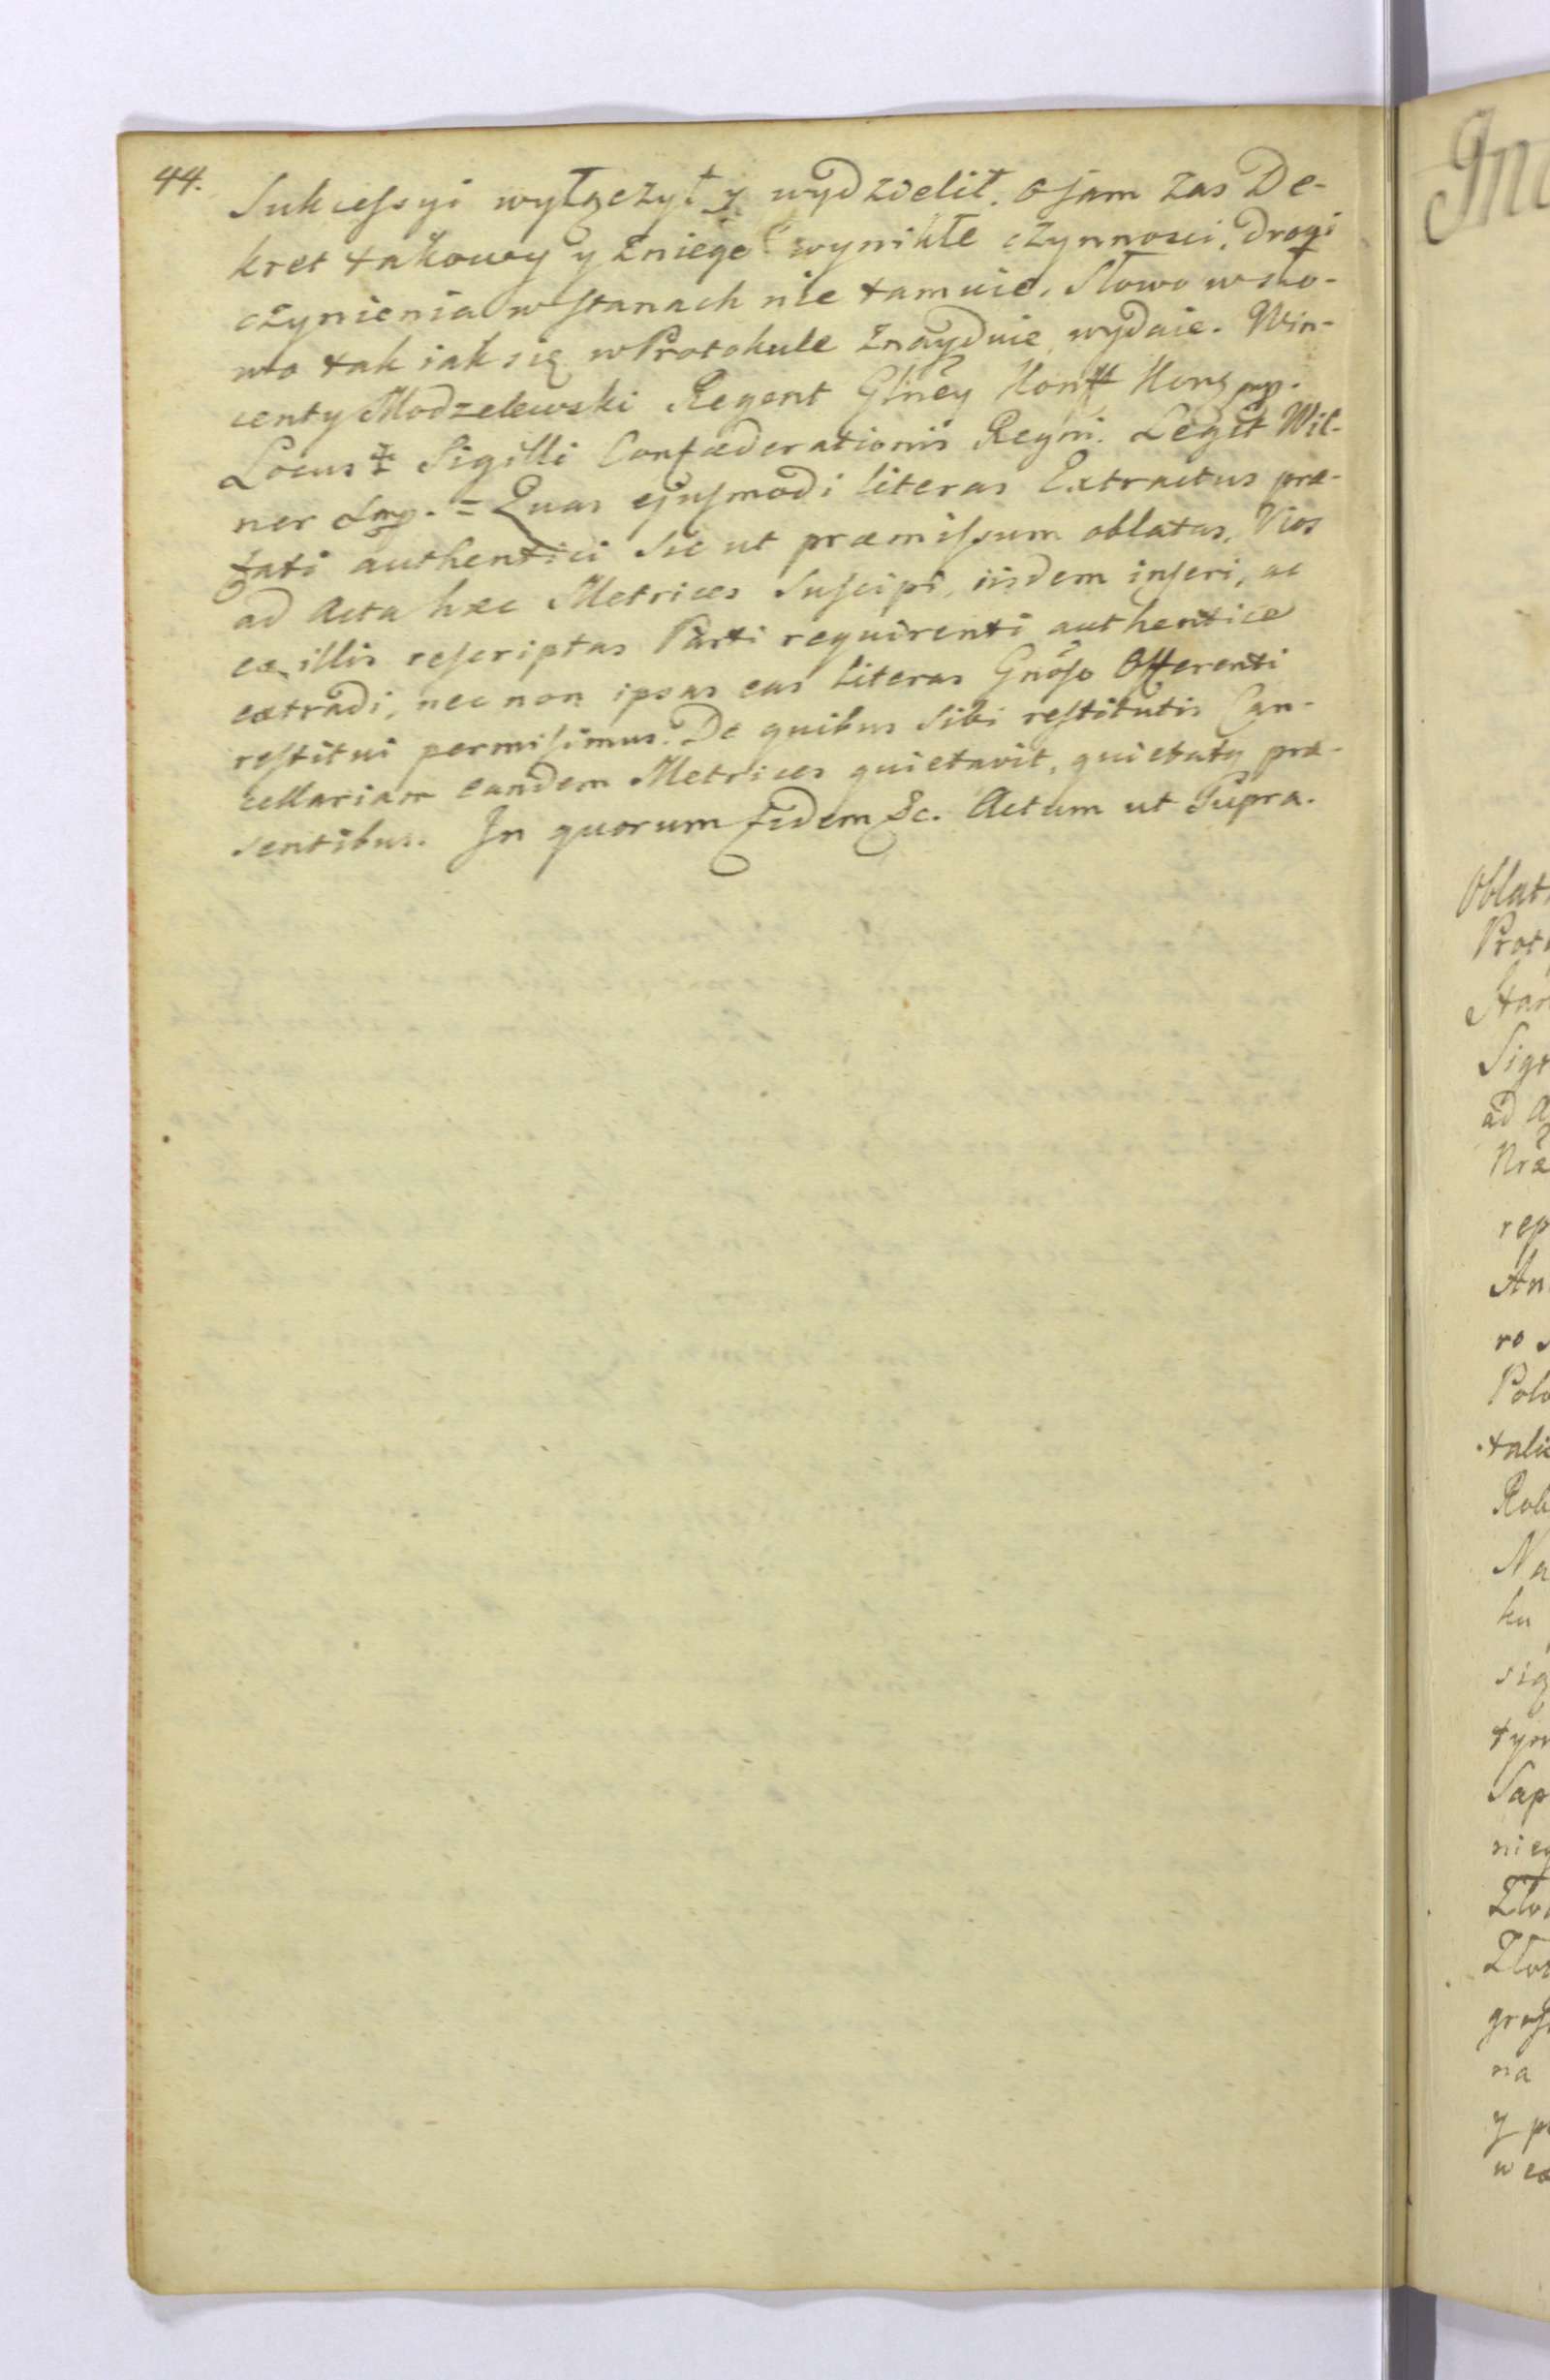 44.
Sukcessyi wyłączył y wydzielił. o sam zas De-
kret takowy y zniego wynikłe czynnosci, drogi
czynienia w stanach nie tamuie. Słowo w sło-
wo tak iak się w Protokule znayduie wydaie. Win-
centy Modzelewski Regent Glney Konf. Kor. mp.
Locus Sigilli Confæderationis Regni. Legit Wil-
ner mp. = Quas ejusmodi literas Extractus præ-
fati authentici sic ut præmissum oblatas, Nos
ad Acta hæc Metrices suscipi, iisdem inseri, ac
ex illis rescriptas Parti requirenti authentice
extradi, nec non ipsas eas literas Gnoso Offerenti
restitui permisimus. De quibus sibi restitutis Can-
cellariam eandem Metrices quietavit, quietatq præ-
sentibus. In quorum fidem &c. Actum ut Supra.
Oblat
Prot
Sig
ad A
rep
An
ro
Polo
tali
Rob
Na
ku
się
tym
Sap
nieg
Zło
Zło
na
y p